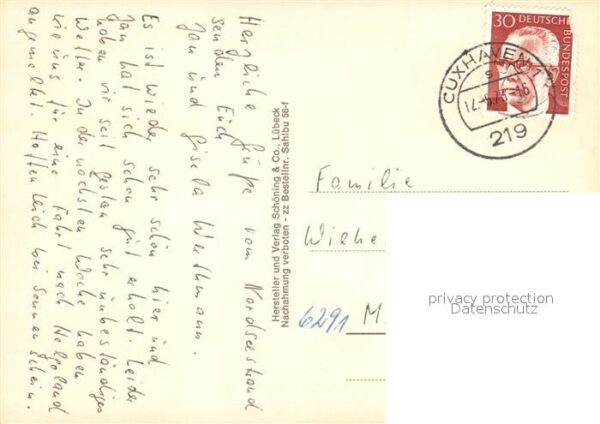 Herzliche Grüße vom Nordseestrand
senden Euch
Jan und Gisela Werthmann.
Es ist wieder sehr schön hier und
Jan hat sich schon gut erholt. Leider
haben wir seit gestern sehr unbeständiges
Wetter. In der nächsten Woche haben
wir uns für eine Fahrt nach Helgoland
angemeldet. Hoffentlich bei Sonnenschein.
Hersteller und Verlag Schöning & Co., Lübeck
Nachahmung verboten - zz Bestellnr. Sahlbu 56-f
30 DEUTSCHE
BUNDESPOST
CUXHAVEN 1
219
Familie
6291 M
privacy protection
Datenschutz